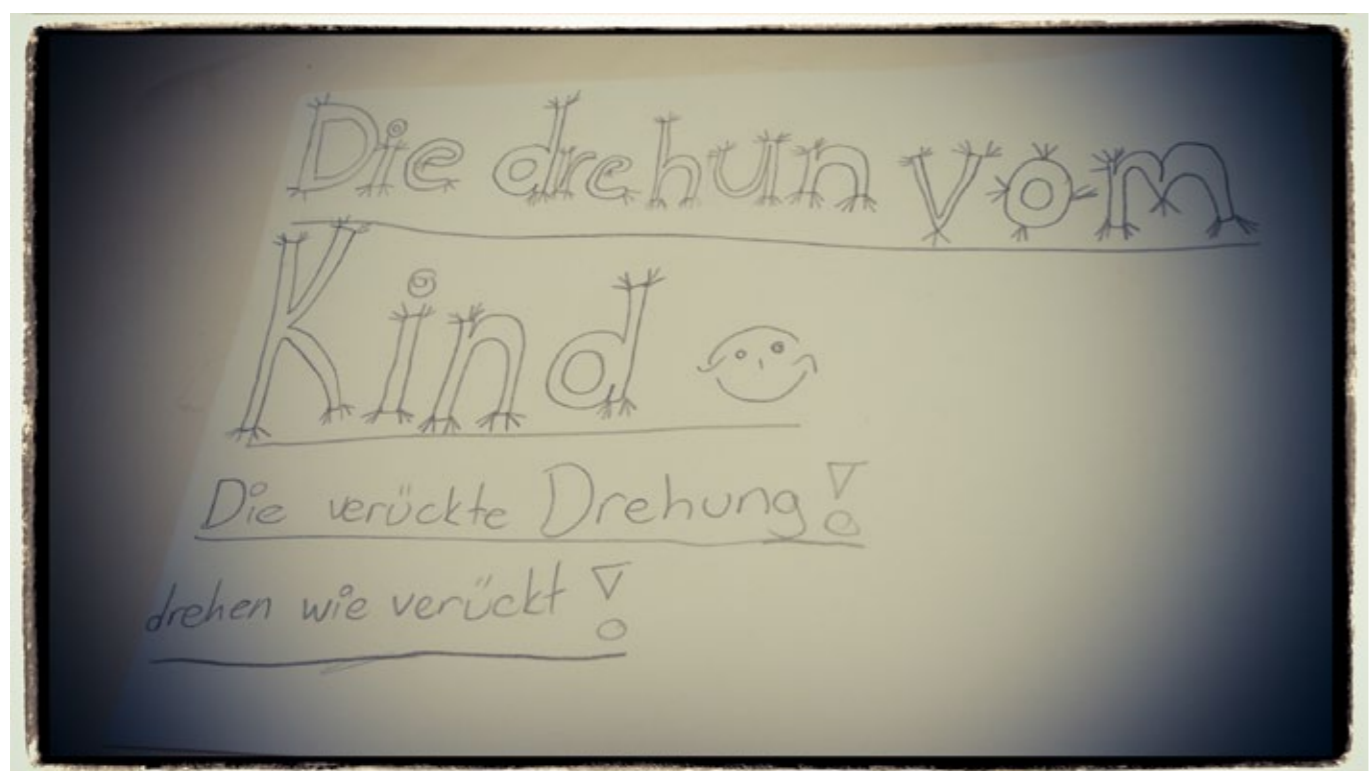 Die drehun vom
Kind
Die verückte Drehung!
drehen wie verückt!